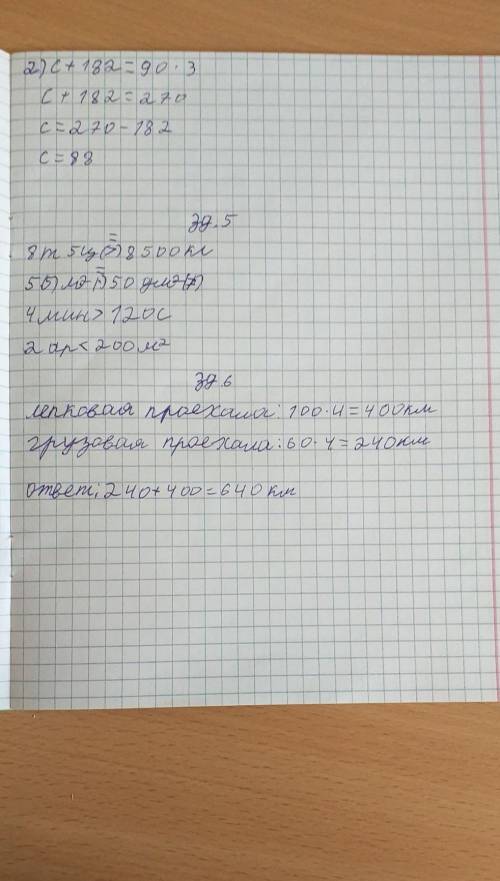 2) c + 182 = 90 · 3
c + 182 = 270
c = 270 - 182
c = 88
зд. 5
8т 5ц (>) = 8500кг
4 мин > 120с
2 ар < 200 м²
зд 6
легковая проехала: 100 · 4 = 400км
грузовая проехала: 60 · 4 = 240км
ответ: 240 + 400 = 640 км